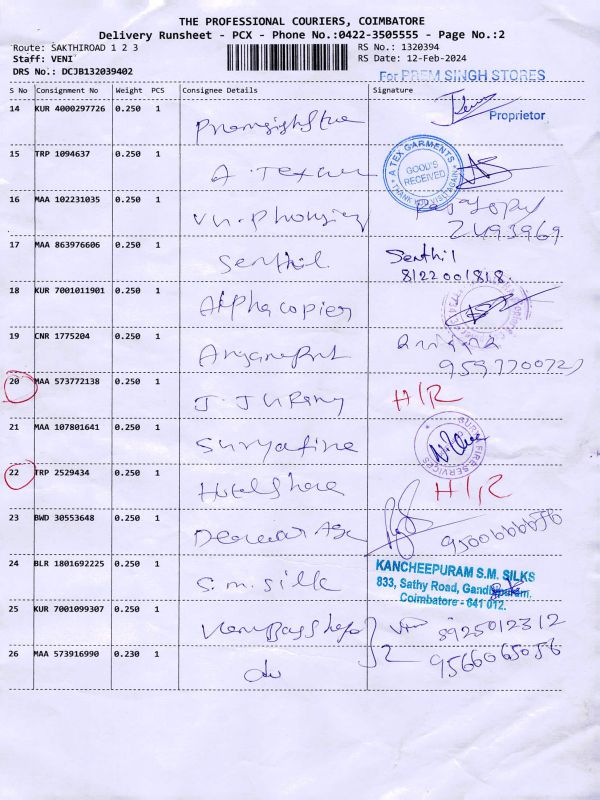 THE PROFESSIONAL COURIERS, COIMBATORE
Delivery Runsheet - PCX - Phone No.:0422-3505555 - Page No.:2
Route: SAKTHIROAD 1 2 3
RS No.: 1320394
Staff: VENI
RS Date: 12-Feb-2024
DRS No.: DCJB132039402
For PREM SINGH STORES
S No Consignment No Weight PCS Consignee Details Signature
14 KUR 4000297726 0.250 1
Proprietor
15 TRP 1094637 0.250 1 A. Tex
A TEX GARMENTS
GOOD'S RECEIVED
THANK YOU VISIT AGAIN
16 MAA 102231035 0.250 1
2493969
17 MAA 863976606 0.250 1 Senthil Senthil
8122001818
18 KUR 7001011901 0.250 1 Alpha copier
19 CNR 1775204 0.250 1
20 MAA 573772138 0.250 1 H/R
21 MAA 107801641 0.250 1 Suryafire
FIRE SERVICES
22 TRP 2529434 0.250 1 H/R
23 BWD 30553648 0.250 1
24 BLR 1801692225 0.250 1 S.M. Silk
KANCHEEPURAM S.M. SILKS
833, Sathy Road, Gandhipuram,
Coimbatore - 641 012.
25 KUR 7001099307 0.250 1
5925012312
26 MAA 573916990 0.230 1 do
2 9566065056